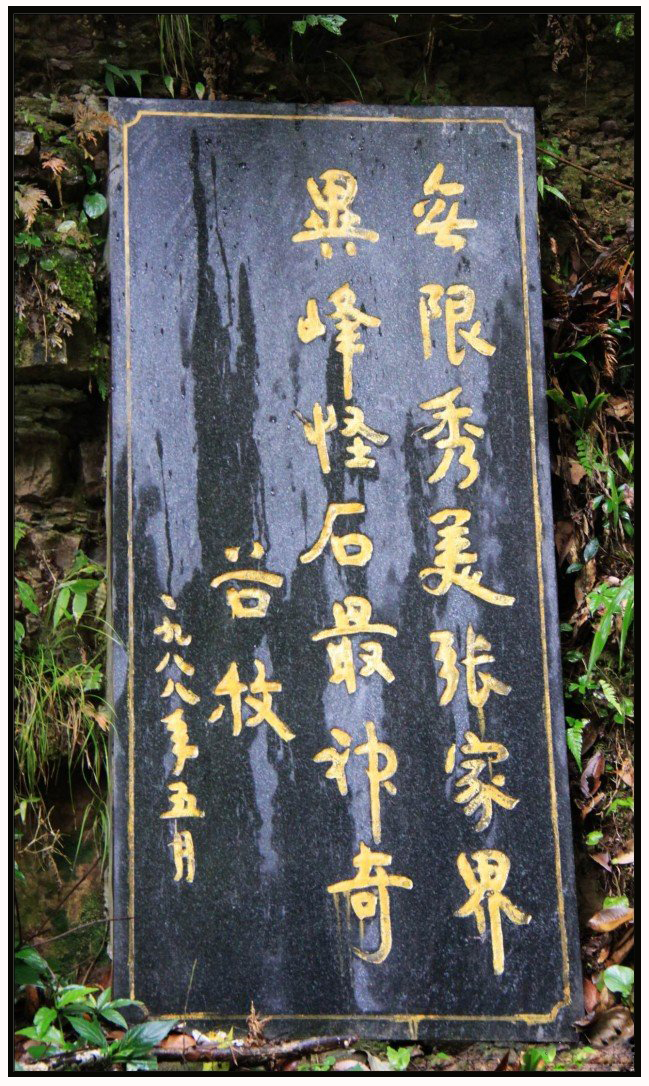 无限秀美张家界
異峰怪石最神奇
谷牧
一九八八年五月